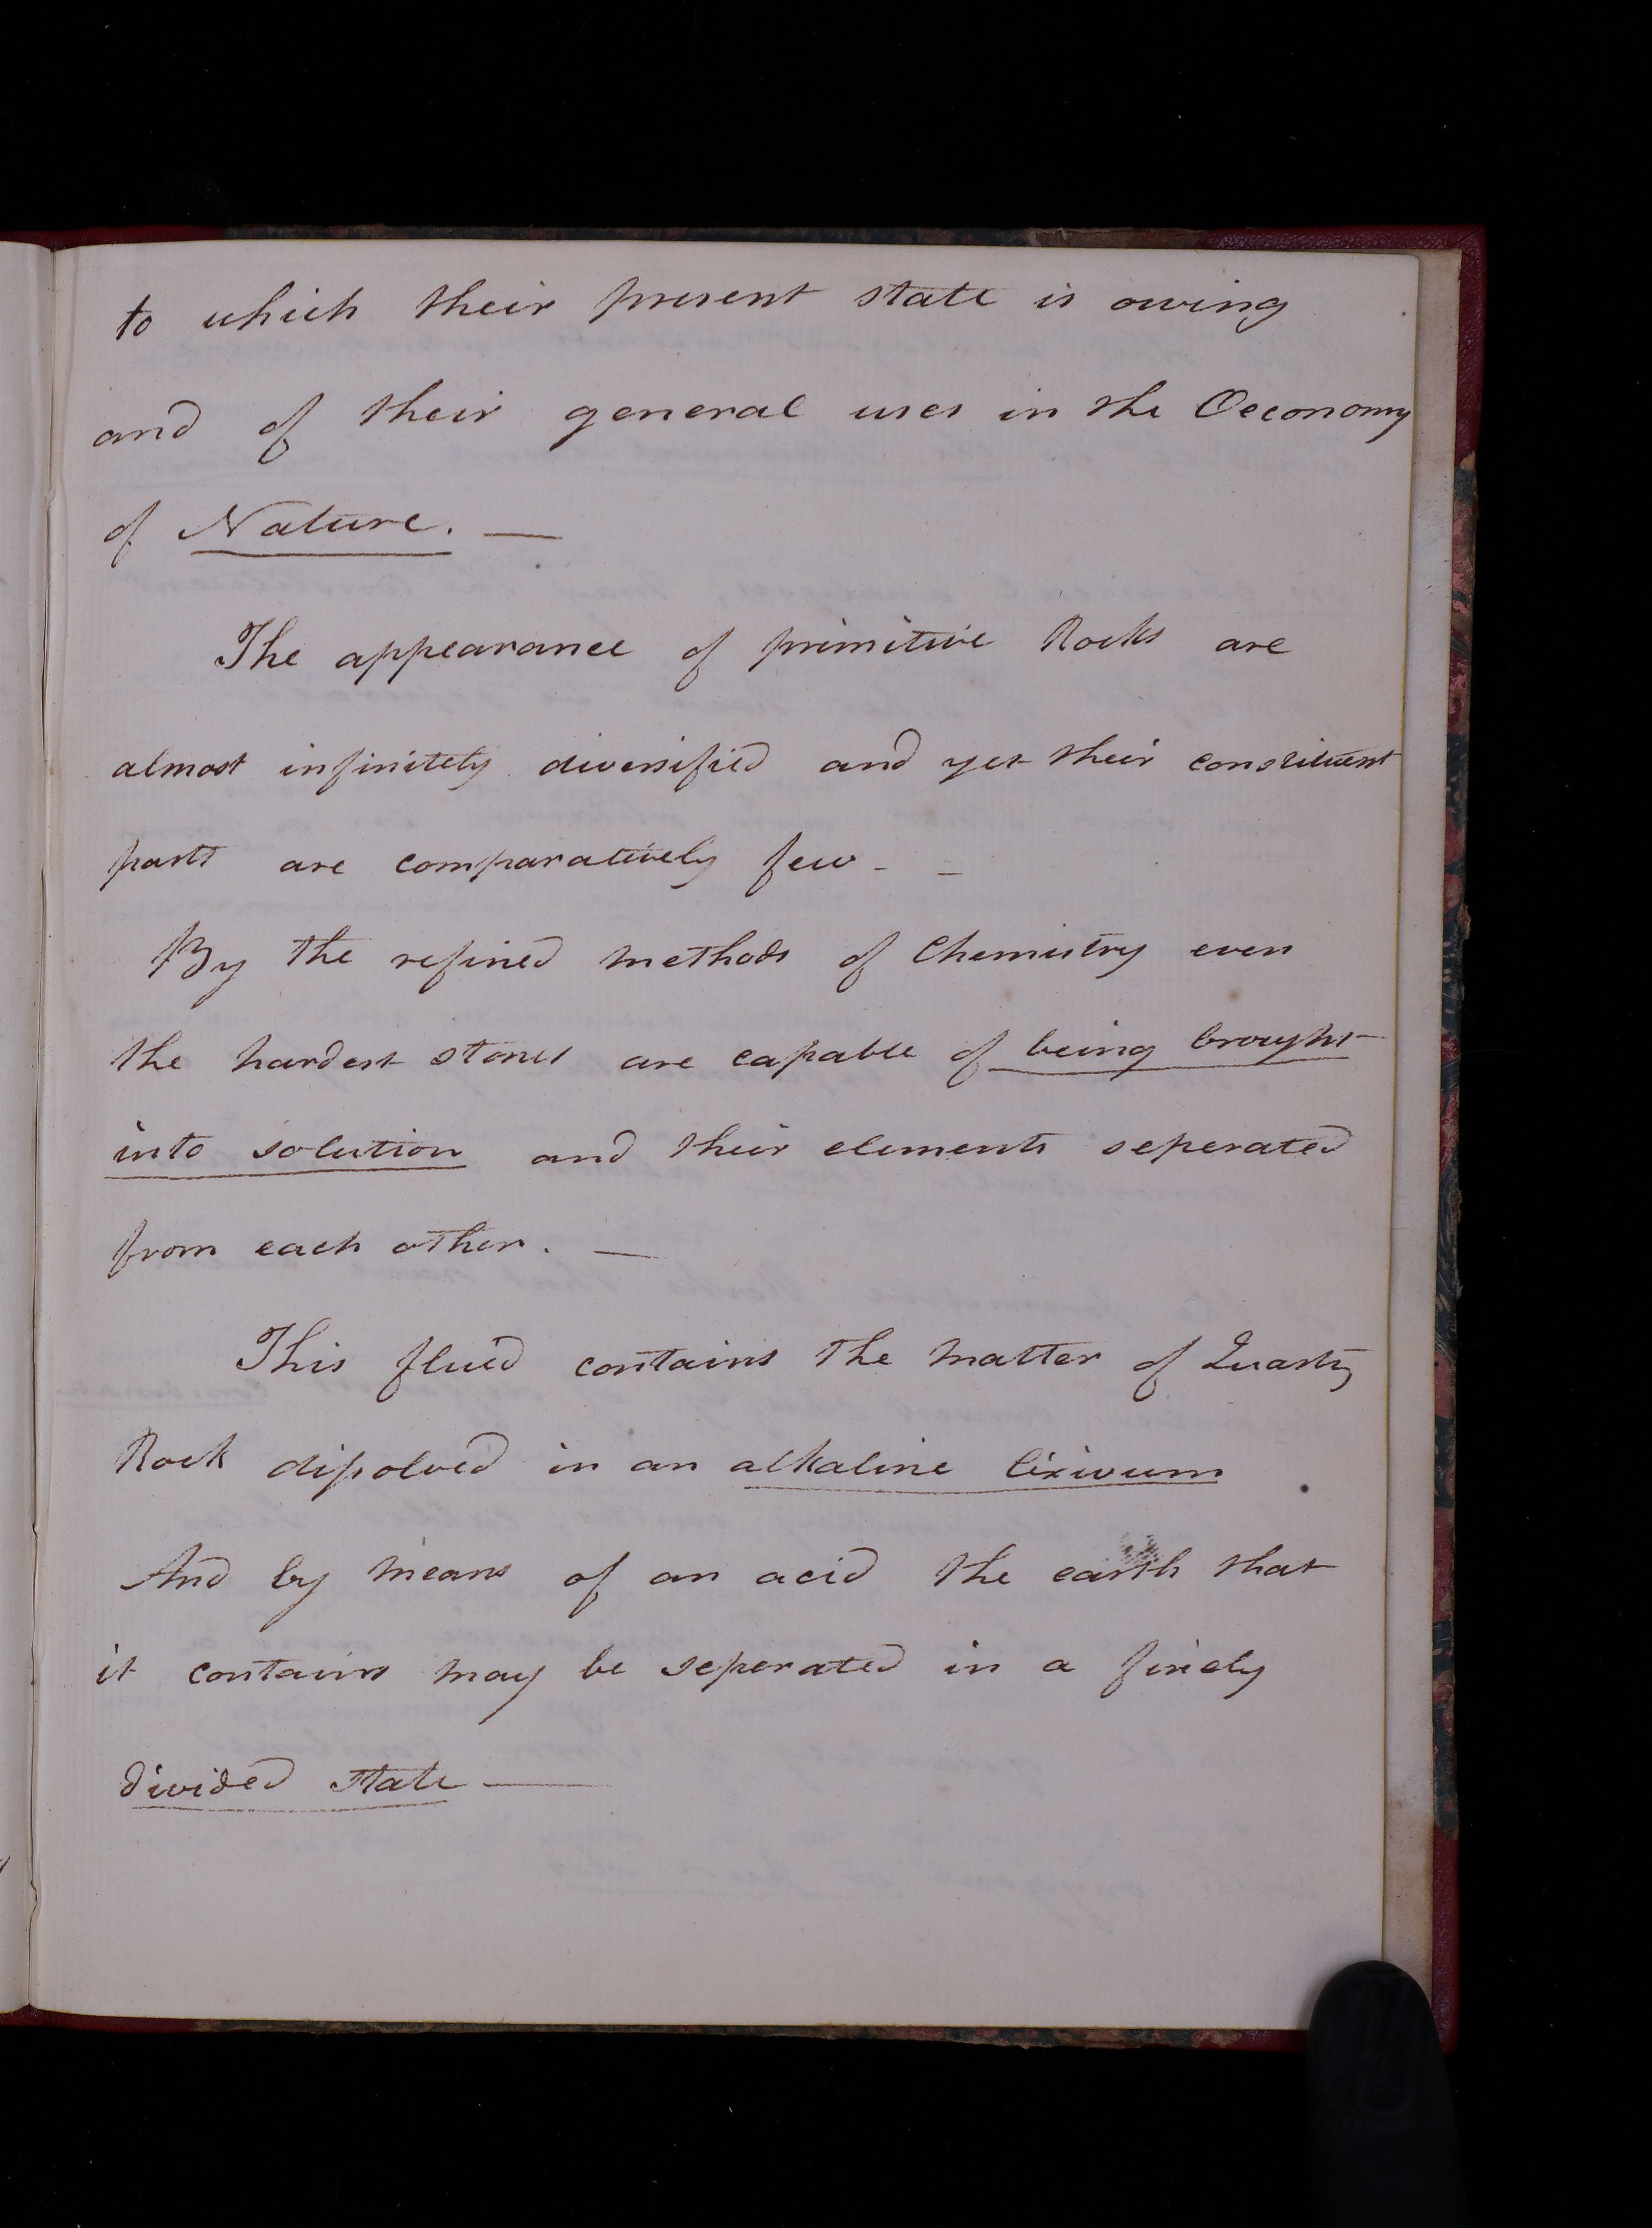 to which their present state is owing
and of their general uses in the Oeconomy
of Nature. —
The appearance of primitive Rocks are
almost infinitely diversified and yet their constituent
parts are comparatively few - -
By the refined methods of Chemistry even
the hardest stones are capable of being brought
into solution and their elements seperated
from each other. —
This fluid contains the matter of Quartz
Rock dissolved in an alkaline lixivum
And by means of an acid the earth that
it contains may be seperated in a finely
divided state —